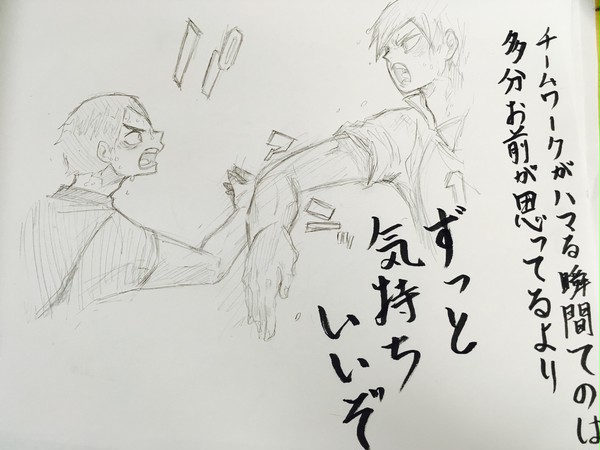 チームワークがハマる瞬間てのは
多分お前が思ってるより
ずっと
気持ち
いいぞ